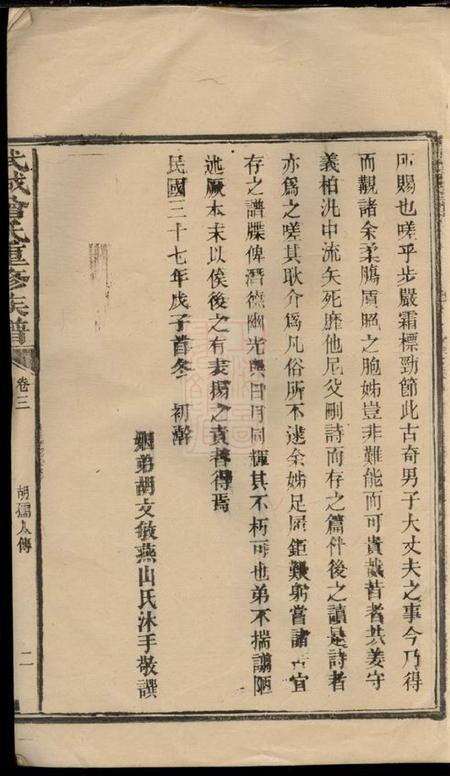 所賜也嗟乎步嚴霜標勁節此古奇男子大丈夫之事今乃得
而觀諸余柔腸質嫕之胞姊豈非難能而可貴哉昔者共姜守
義柏汎中流矢死靡他尼父刪詩而存之篇什後之讀是詩者
亦為之嗟其耿介為凡俗所不逮余姊足履鉅艱躬嘗諸苦宜
存之譜牒俾潛德幽光與日月同輝其不朽可也弟不揣譾陋
述厥本末以俟後之有表揚之責者得焉
民國三十七年戊子首冬 初澣
姻弟胡文敏燕山氏沐手敬譔
武城曾氏重修族譜
卷三
胡孺人傳
二